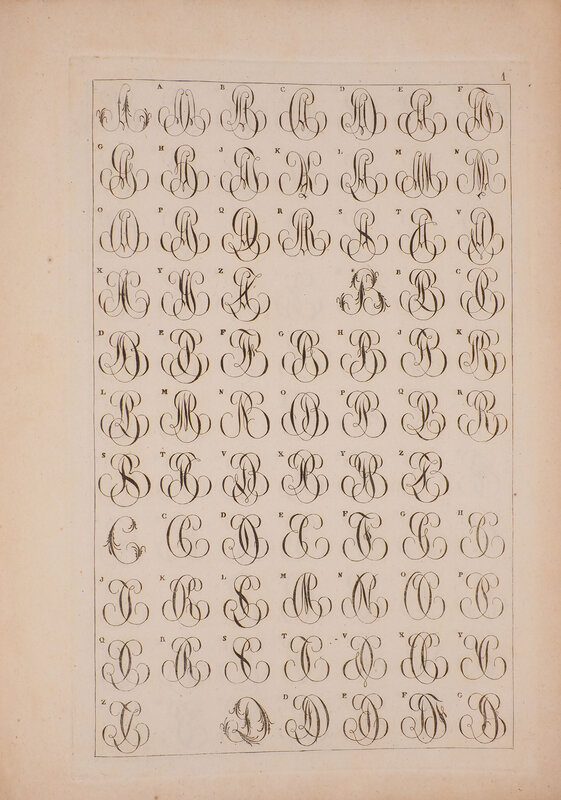 1
A A B C D E F
G H J K L M N
O P Q R S T V
X Y Z B B C
D E F G H J K
L M N O P Q R
S T V X Y Z
C C D E F G H
J K L M N O P
Q R S T V X Y
Z D D E F G